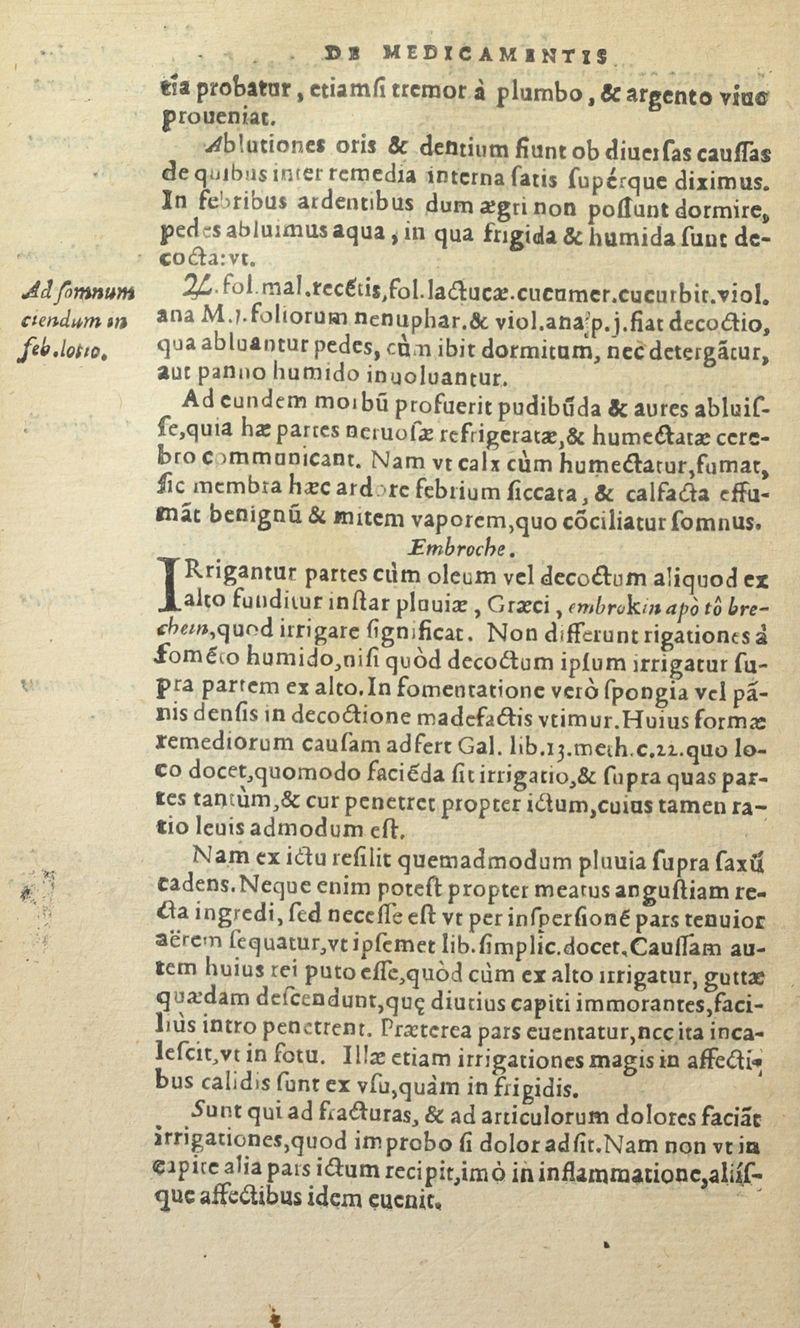 DE MEDICAMENTIS
tia probatur, etiamſi tremor à plumbo, & argento viuo
proueniat.
Ablutiones oris & dentium fiunt ob diuerſas cauſſas
de quibus inter remedia interna ſatis ſupérque diximus.
In febribus ardentibus dum ægri non poſſunt dormire,
pedes abluimus aqua, in qua frigida & humida ſunt de-
cocta: vt.
Ad ſomnum
ciendum in
feb. lotio.
♃. fol. mal. recētis, fol. lactucæ. cucumer. cucurbit. viol.
ana M. j. foliorum nenuphar. & viol. ana. p. j. fiat decoctio,
qua abluantur pedes, cùm ibit dormitum, nec detergātur,
aut panno humido inuoluantur.
Ad eundem morbū profuerit pudibūda & aures abluiſ-
ſe, quia hæ partes neruoſæ refrigeratæ, & humectatæ cere-
bro communicant. Nam vt calx cùm humectatur, fumat,
ſic membra hæc ardore febrium ſiccata, & calfacta effu-
māt benignū & mitem vaporem, quo cōciliatur ſomnus.
Embroche.
IRrigantur partes cùm oleum vel decoctum aliquod ex
alto funditur inſtar pluuiæ, Græci, embrokin apò tô bre-
chein, quod irrigare ſignificat. Non differunt rigationes à
fomēto humido, niſi quòd decoctum ipſum irrigatur ſu-
pra partem ex alto. In fomentatione verò ſpongia vel pā-
nis denſis in decoctione madefactis vtimur. Huius formæ
remediorum cauſam adfert Gal. lib. 13. meth. c. 22. quo lo-
co docet, quomodo faciēda ſit irrigatio, & ſupra quas par-
tes tantùm, & cur penetret propter ictum, cuius tamen ra-
tio leuis admodum eſt.
Nam ex ictu reſilit quemadmodum pluuia ſupra ſaxū
cadens. Neque enim poteſt propter meatus anguſtiam re-
cta ingredi, ſed neceſſe eſt vt per inſperſionē pars tenuior
aërem ſequatur, vt ipſemet lib. ſimplic. docet. Cauſſam au-
tem huius rei puto eſſe, quòd cùm ex alto irrigatur, guttæ
quædam deſcendunt, quę diutius capiti immorantes, faci-
liùs intro penetrent. Præterea pars euentatur, nec ita inca-
leſcit, vt in fotu. Illæ etiam irrigationes magis in affecti-
bus calidis ſunt ex vſu, quàm in frigidis.
Sunt qui ad fracturas, & ad articulorum dolores faciāt
irrigationes, quod improbo ſi dolor adſit. Nam non vt in
capite alia pars ictum recipit, imò in inflammatione, aliiſ-
que affectibus idem euenit.